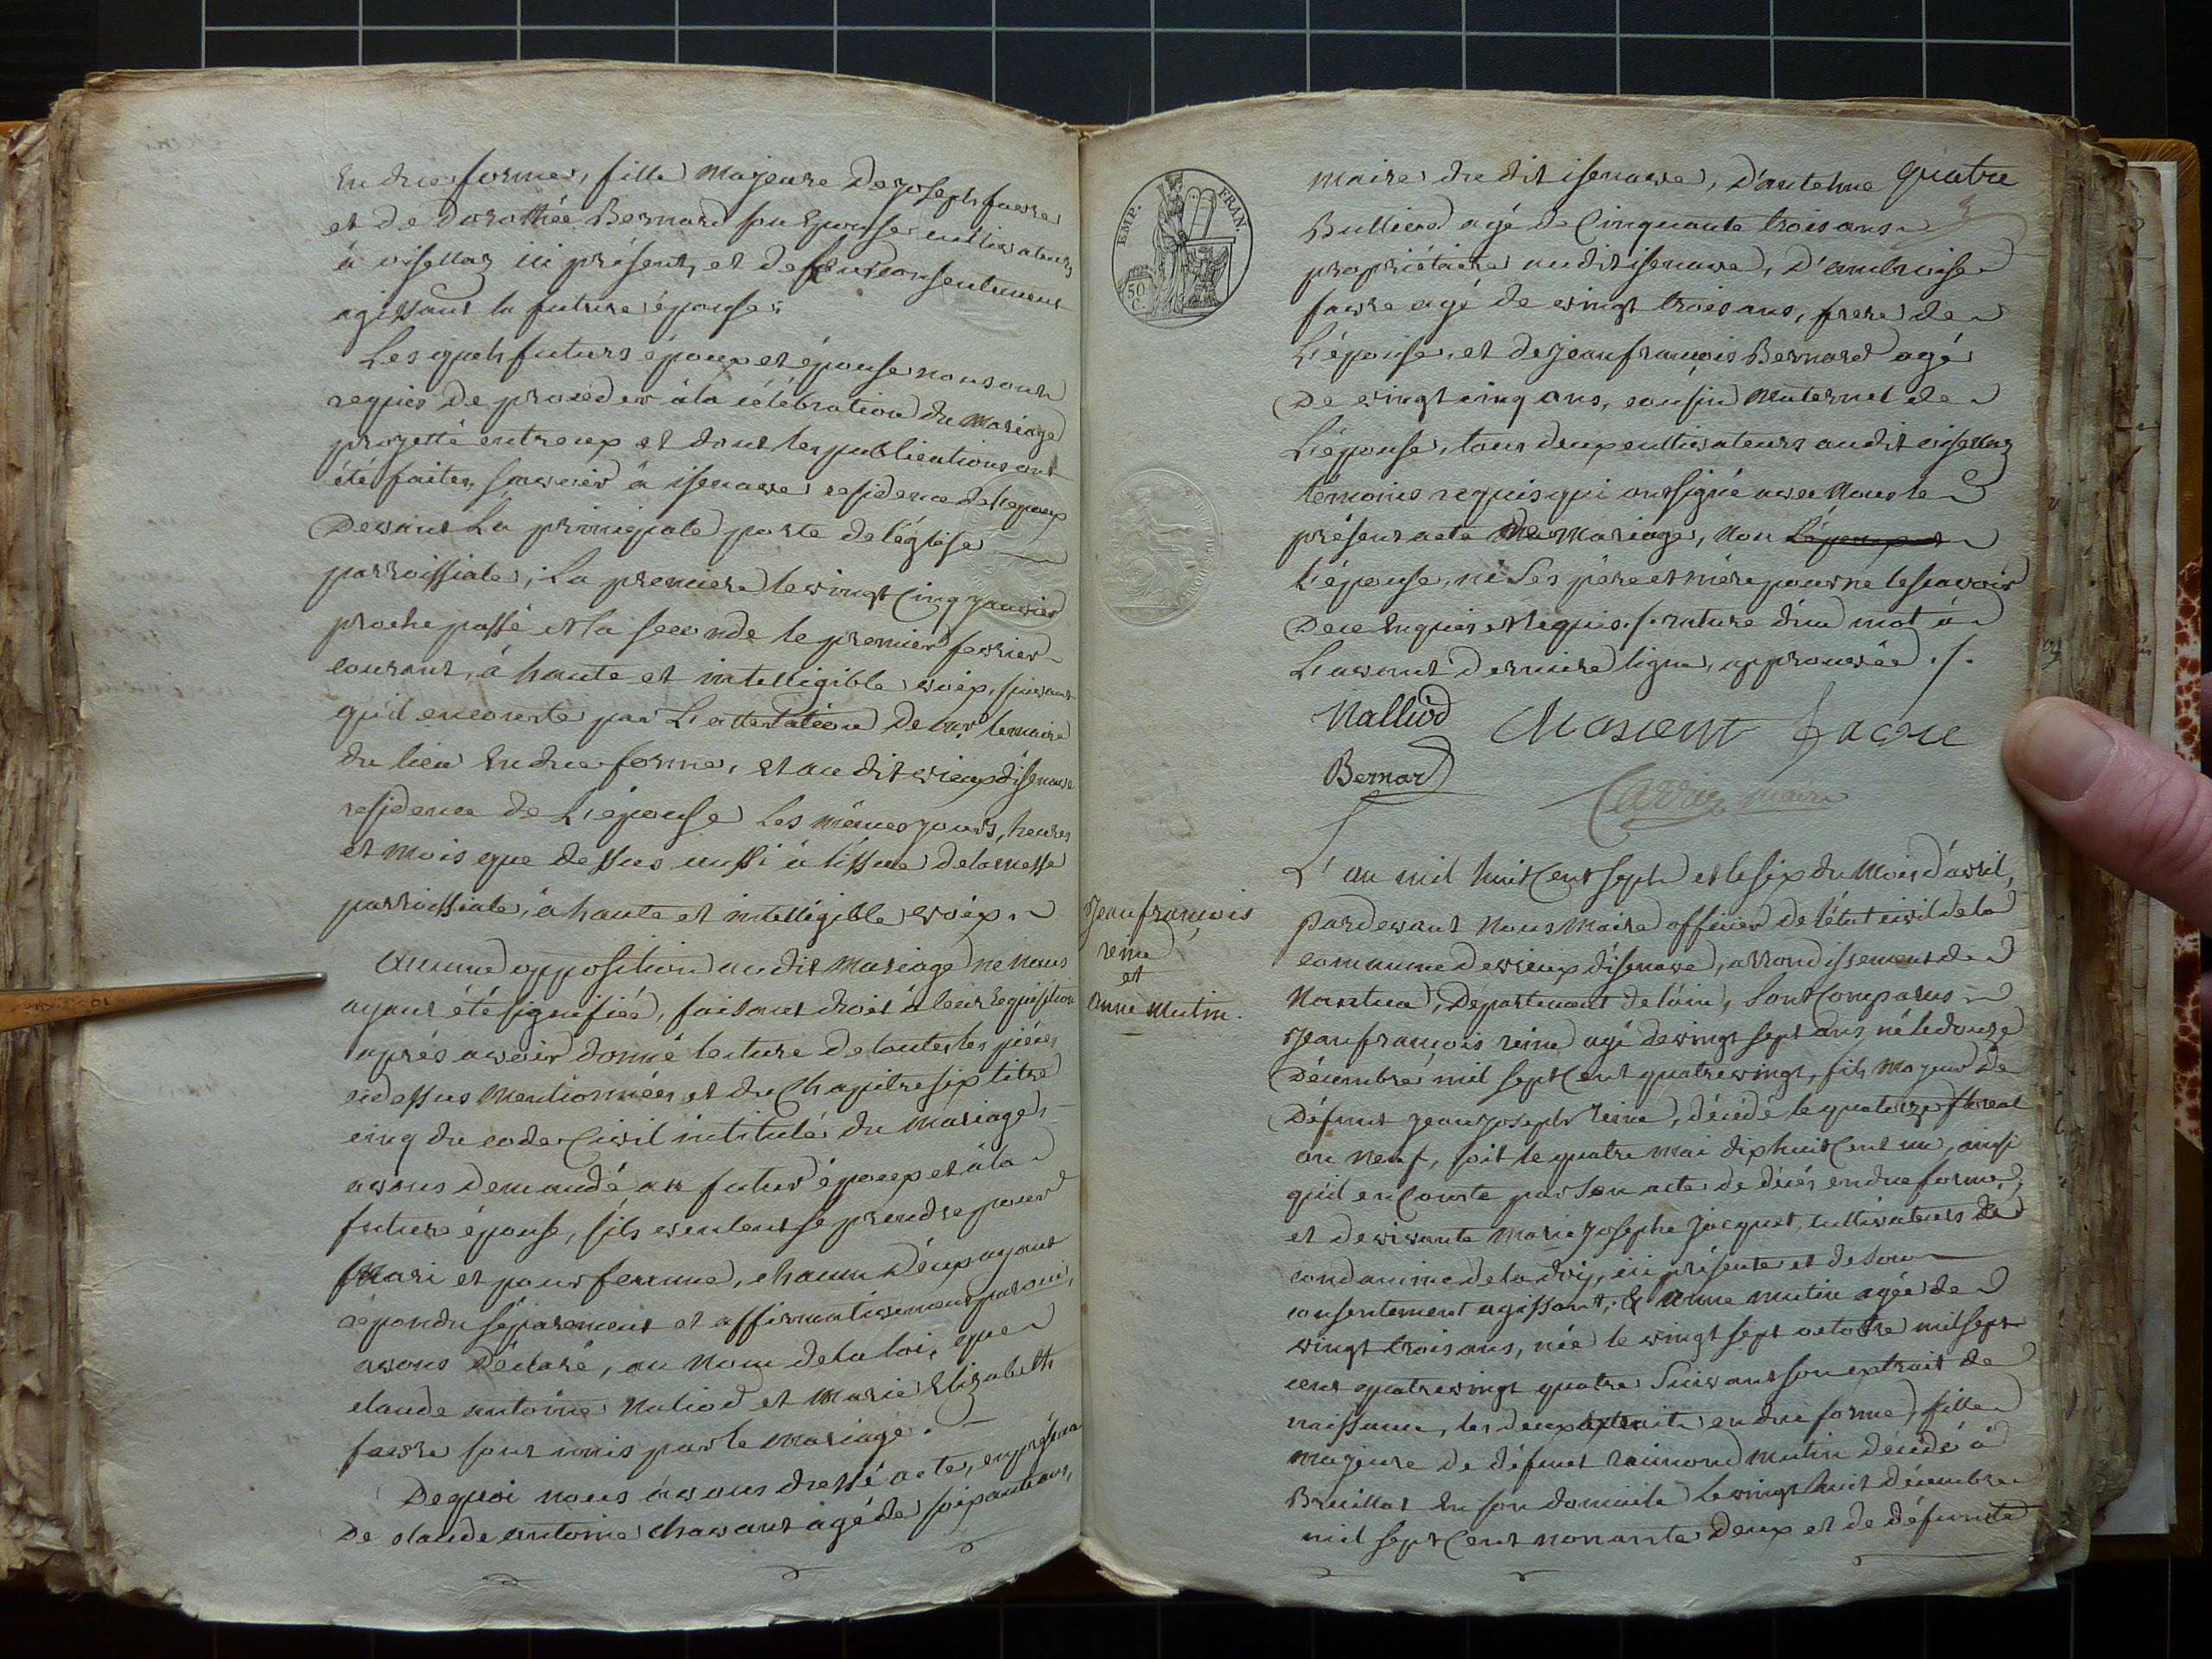 En due forme, fille majeure de joseph favre
et de Dorothée Bernard son Epouse cultivateurs
à visellaz ici présents, et de leur consentement
agissant la future épouse.
Les quels futurs époux et épouse nous ont
requis de procéder à la célébration du mariage
projetté entre eux et dont les publications ont
été faites, sçavoir à isenave residence de l'epoux
Devant La principale porte de l'église
parroissiale; La premiere le vingt Cinq janvier
proche passé et la seconde le premier fevrier
courant, à haute et intelligible voix, suivant
qu'il en conste par L'attestation de mr le maire
du lieu En due forme, et au dit vieux d'isenave
residence de L'épouse Les mêmes jours, heures
et mois que dessus aussi à l'issue de la messe
parroissiale, à haute et intelligible voix.
Aucune opposition au dit mariage ne nous
ayant été signifiée, faisant droit à leur Requisition
après avoir donné lecture de toutes les pièces
cidessus mentionnées et du Chapitre six titre
cinq du code Civil intitulé du mariage,
avons demandé au futur époux et à la
future épouse, s'ils veulent se prendre pour
mari et pour femme, chacun d'eux ayant
répondu séparément et affirmativement par oui,
avons déclaré, au nom de la loi, que
claude antoine Naliod et marie Elizabeth
favre sont unis par le mariage.
De quoi nous avons dressé acte, en présence
De claude antoine chavant agé de soixante ans,
EMP. FRAN.
50 C.
quatre
maire du dit isenave, D'antelme
Bulliod agé de Cinquante trois ans
propriétaire au dit isenave, D'ambroise
favre agé de vingt trois ans, frere de
L'épouse, et de jean françois Bernard agé
De vingt cinq ans, cousin maternel de
L'épouse, tous deux cultivateurs audit visellaz
témoins requis qui ont signé avec Nous le
présent acte de mariage, non
L'épouse, ni Ses père et mère pour ne le scavoir
De ce Enquis et Requis ./. rature d'un mot à
L'avant derniere ligne, approuvée ./.
Nalliod
favre
Bernard
maire
Jean françois
reine
et
Anne mutin.
L'an mil huit Cent Sept et le six du mois d'avril,
Pardevant Nous Maire officier de l'état civil de la
commune de vieux d'isenave, arrondissement de
Nantua, Département de l'ain, Sont Comparus
Jean françois reine agé de vingt sept ans, né le douze
Décembre mil Sept Cent quatre vingt, fils majeur de
Défunt jean joseph reine, décédé le quatorze floreal
an Neuf, soit le quatre mai dix huit Cent un, ainsi
qu'il en Conste par Son acte de décès en due forme,
et de vivante marie josephe jacquet, cultivateurs de
condamine de la doye, ici présente et de son
consentement agissant; & anne mutin agée de
vingt trois ans, née le vingt sept octobre mil sept
cent quatre vingt quatre Suivant son extrait de
naissance, les deux extraits en due forme, fille
majeure de défunt raimond mutin décédé à
Breillat En son domicile le vingt huit décembre
mil sept Cent nonante Deux et de défunte